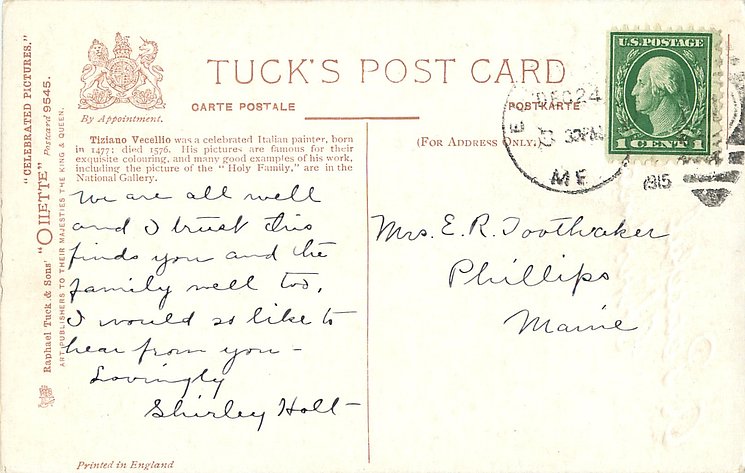 "CELEBRATED PICTURES."
"OILETTE" Postcard 9545.
Raphael Tuck & Sons'
ART PUBLISHERS TO THEIR MAJESTIES THE KING & QUEEN.
By Appointment.
TUCK'S POST CARD
CARTE POSTALE
POSTKARTE
(FOR ADDRESS ONLY.)
Tiziano Vecellio was a celebrated Italian painter, born
in 1477; died 1576. His pictures are famous for their
exquisite colouring, and many good examples of his work,
including the picture of the "Holy Family," are in the
National Gallery.
We are all well
and I trust this
finds you and the
family well too.
I would so like to
hear from you –
Lovingly
Shirley Holt
Mrs. E. R. Toothaker
Phillips
Maine
U.S. POSTAGE
1 CENT 1
DEC 24
30 PM
ME
1915
Printed in England